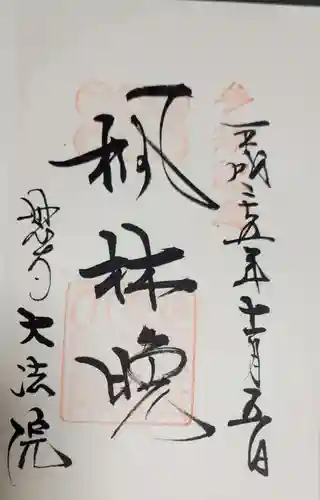 平成二十五年十一月五日
楓林晩
妙心寺大法院